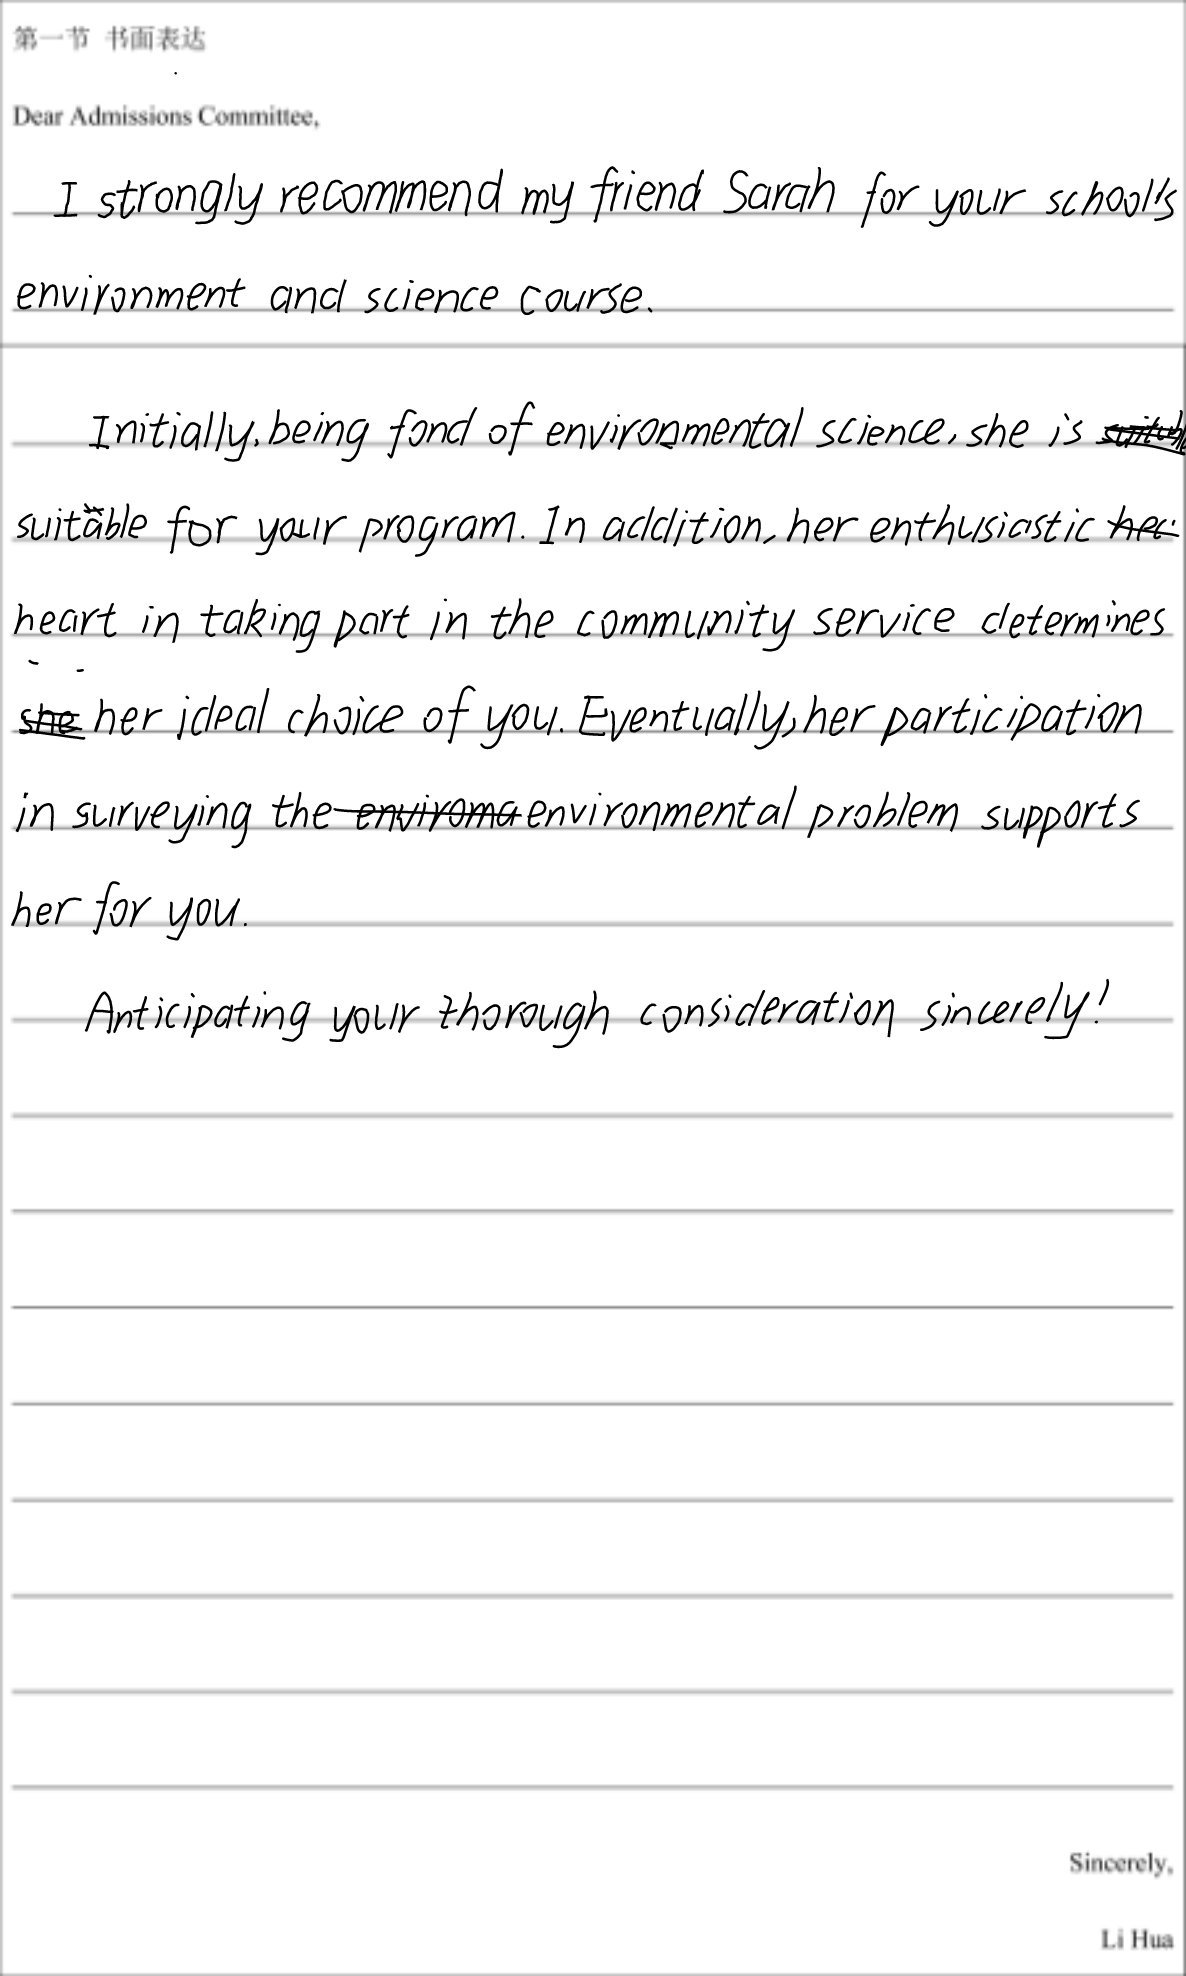 第一节 书面表达
Dear Admissions Committee,
I strongly recommend my friend Sarah for your school's
environment and science course.
Initially, being fond of environmental science, she is
suitable for your program. In addition, her enthusiastic
heart in taking part in the community service determines
her ideal choice of you. Eventually, her participation
in surveying the environmental problem supports
her for you.
Anticipating your thorough consideration sincerely!
Sincerely,
Li Hua